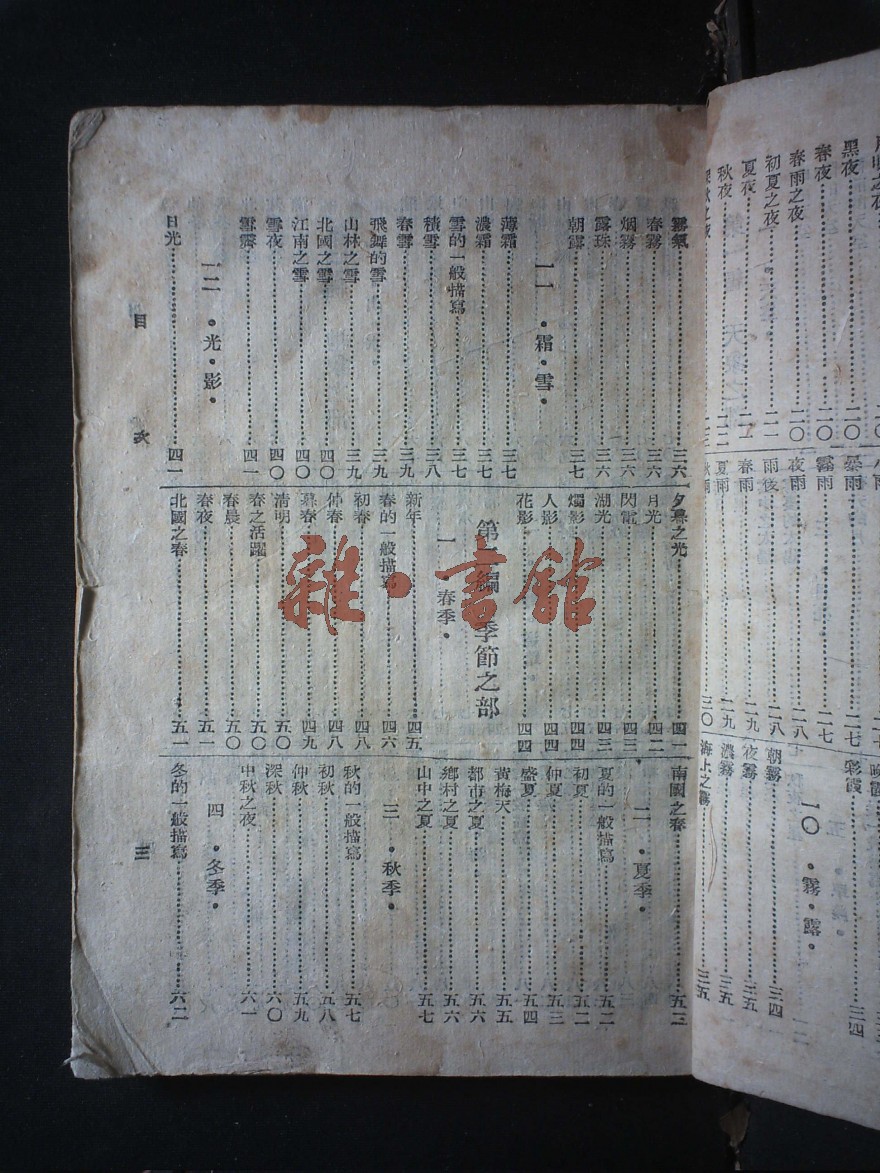 黑夜……二〇
春夜……二〇
春雨之夜……二〇
初夏之夜……二一
夏夜……二一
秋夜……二二
深秋之夜……二三
小雨
暴雨……二七
霧雨……二七
夜雨……二八
雨後……二八
春雨……二九
夏雨……二九
秋雨……三〇
晚霞
彩霞……三四
一〇・霧・露・
朝霧……三四
夜霧……三五
濃霧……三五
海上之霧……三五
霧氣……三六
春霧……三六
烟霧……三六
露珠……三六
朝露……三七
一一・霜・雪・
薄霜……三七
濃霜……三七
雪的一般描寫……三七
積雪……三八
春雪……三九
飛舞的雪……三九
山林之雪……三九
北國之雪……四〇
江南之雪……四〇
雪夜……四〇
雪霽……四一
一二・光・影・
日光……四一
夕暮之光……四一
月光……四二
閃電……四三
湖光……四三
燭影……四四
人影……四四
花影……四四
第二編 季節之部
一・春季・
新年……四五
春的一般描寫……四六
初春……四八
仲春……四八
暮春……四九
清明……五〇
春之活躍……五〇
春晨……五〇
春夜……五一
北國之春……五一
南國之春……五二
二・夏季・
夏的一般描寫……五二
初夏……五二
仲夏……五三
盛夏……五四
黃梅天……五五
都市之夏……五六
鄉村之夏……五六
山中之夏……五七
三・秋季・
秋的一般描寫……五七
初秋……五八
仲秋……五九
深秋……六〇
中秋之夜……六一
四・冬季・
冬的一般描寫……六二
目次
三
雜・書館